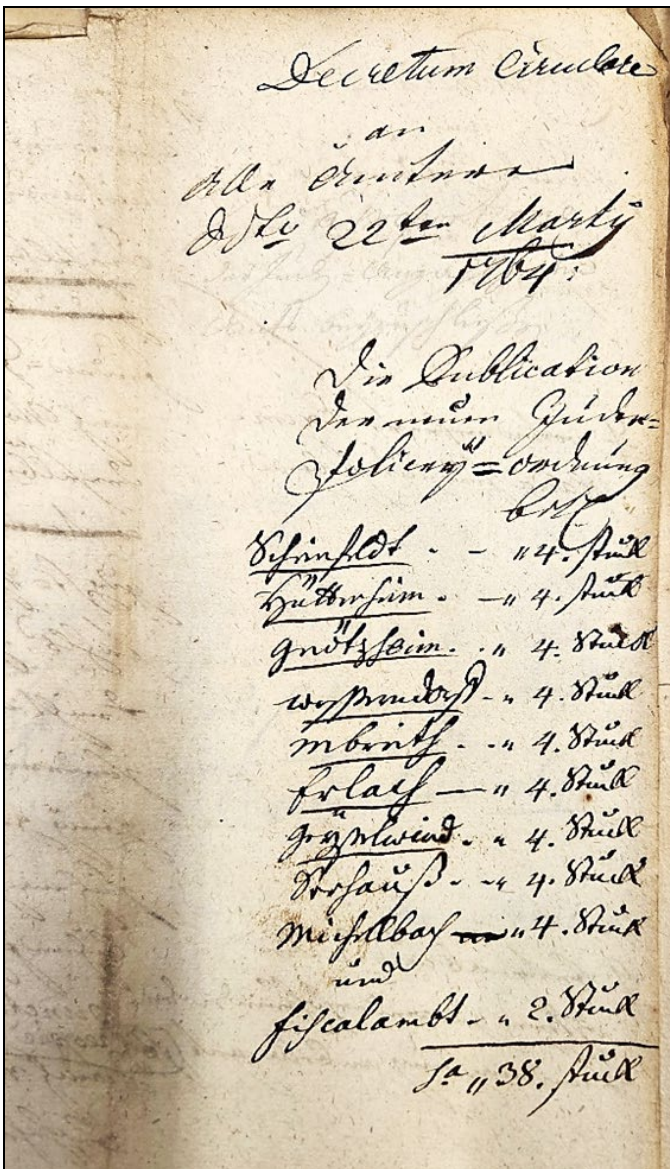 Decretum Circulare
an
alle Ämtere
Ddto 22ten Martÿ
1764.
Die Publication
der neuen Juden=
Policeÿ=ordnung
betr.
Scheinfeldt . - " 4. stuck
Hüttenheim . - " 4. stuck
Gnötzheim . . " 4. Stuck
Wässerndorf - " 4. Stuck
Mbreith . - " 4. Stuck
Erlach — " 4. Stuck
Geÿselwind . " 4. Stuck
Seehauß . - " 4. Stuck
Michelbach " 4. Stuck
und
fiscalambt . " 2. Stuck
Sa " 38. stuck